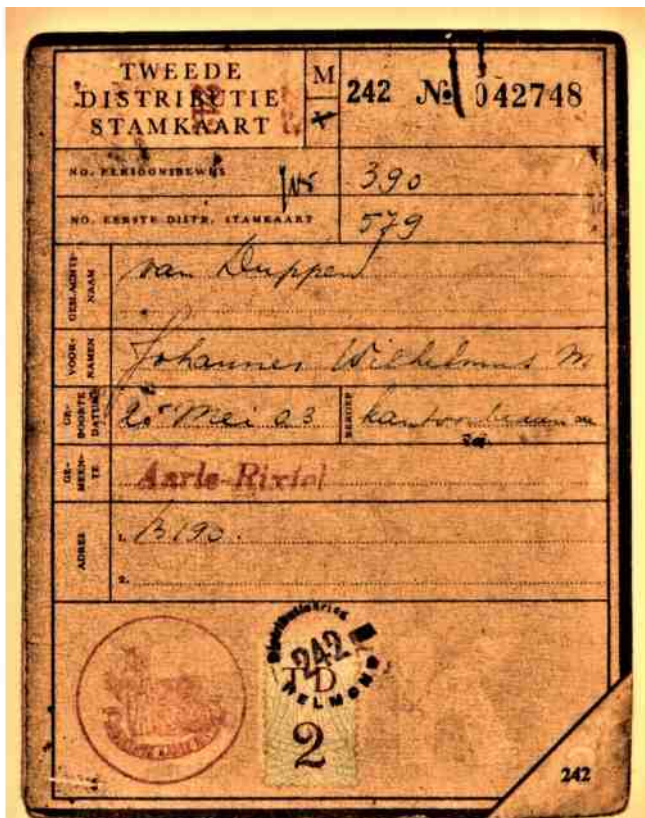 TWEEDE
DISTRIBUTIE
STAMKAART
M
242 No. 042748
NO. PERSOONSBEWIJS 390
NO. EERSTE DISTR. STAMKAART 579
GESLACHTS-
NAAM
van Duppen
VOOR-
NAMEN
Johannes Wilhelmus M
GE-
BOORTE
DATUM
20 Mei 03
BEROEP
GE-
MEEN-
TE
Aarle-Rixtel
ADRES
1. B 190.
2.
Distributiekring
242
TD
HELMOND
2
242